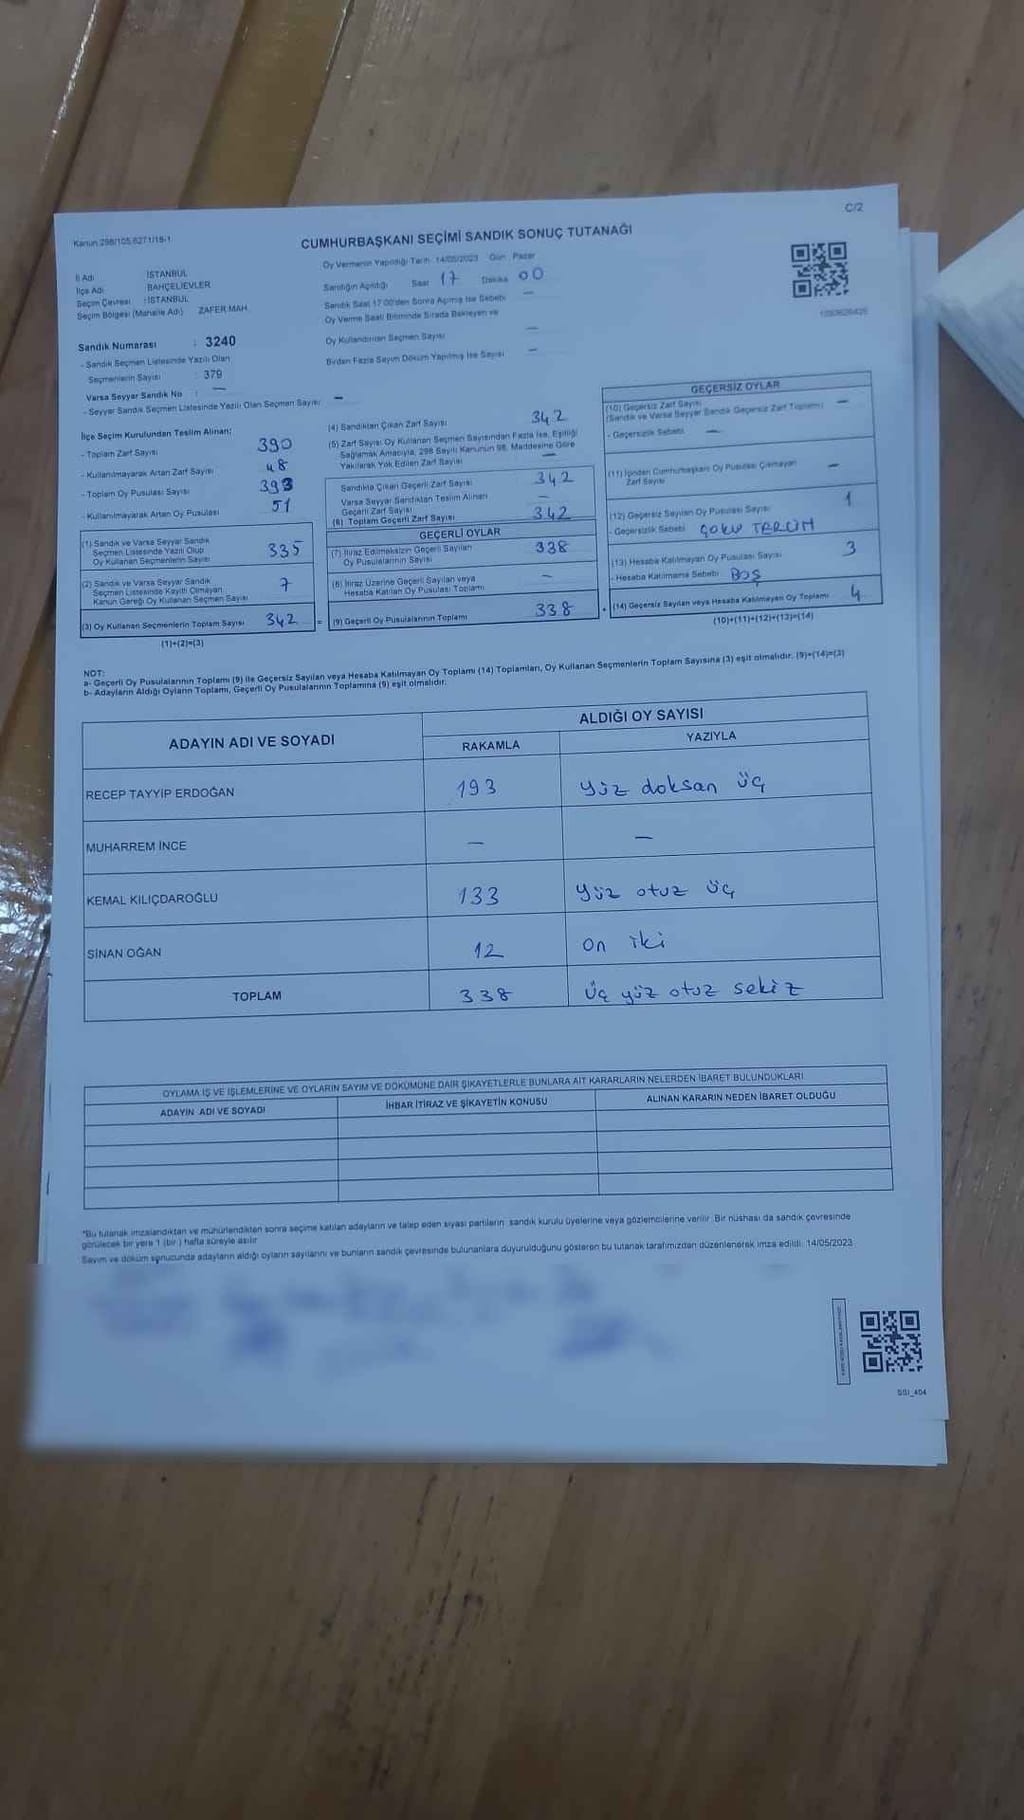 C/2
Kanun:298/105,6271/18-1
CUMHURBAŞKANI SEÇİMİ SANDIK SONUÇ TUTANAĞI
İl Adı : İSTANBUL
İlçe Adı : BAHÇELİEVLER
Seçim Çevresi : İSTANBUL
Seçim Bölgesi (Mahalle Adı) ZAFER MAH.
Oy Vermenin Yapıldığı Tarih: 14/05/2023 Gün: Pazar
Sandığın Açıldığı Saat 17 Dakika 00
Sandık Saat 17:00'den Sonra Açılmış İse Sebebi —
Oy Verme Saati Bitiminde Sırada Bekleyen ve
Oy Kullandırılan Seçmen Sayısı —
Birden Fazla Sayım Döküm Yapılmış İse Sayısı —
Sandık Numarası : 3240
- Sandık Seçmen Listesinde Yazılı Olan
Seçmenlerin Sayısı : 379
Varsa Seyyar Sandık No : —
- Seyyar Sandık Seçmen Listesinde Yazılı Olan Seçmen Sayısı: —
İlçe Seçim Kurulundan Teslim Alınan:
- Toplam Zarf Sayısı 390
- Kullanılmayarak Artan Zarf Sayısı 48
- Toplam Oy Pusulası Sayısı 393
- Kullanılmayarak Artan Oy Pusulası 51
(1) Sandık ve Varsa Seyyar Sandık
Seçmen Listesinde Yazılı Olup
Oy Kullanan Seçmenlerin Sayısı 335
(2) Sandık ve Varsa Seyyar Sandık
Seçmen Listesinde Kayıtlı Olmayan
Kanun Gereği Oy Kullanan Seçmen Sayısı 7
(3) Oy Kullanan Seçmenlerin Toplam Sayısı 342
(1)+(2)=(3)
(4) Sandıktan Çıkan Zarf Sayısı 342
(5) Zarf Sayısı Oy Kullanan Seçmen Sayısından Fazla İse, Eşitliği
Sağlamak Amacıyla, 298 Sayılı Kanunun 98. Maddesine Göre
Yakılarak Yok Edilen Zarf Sayısı —
Sandıkta Çıkan Geçerli Zarf Sayısı 342
Varsa Seyyar Sandıktan Teslim Alınan
Geçerli Zarf Sayısı —
(6) Toplam Geçerli Zarf Sayısı 342
GEÇERLİ OYLAR
(7) İtiraz Edilmeksizin Geçerli Sayılan
Oy Pusulalarının Sayısı 338
(8) İtiraz Üzerine Geçerli Sayılan veya
Hesaba Katılan Oy Pusulası Toplamı —
(9) Geçerli Oy Pusulalarının Toplamı 338
GEÇERSİZ OYLAR
(10) Geçersiz Zarf Sayısı
(Sandık ve Varsa Seyyar Sandık Geçersiz Zarf Toplamı) —
- Geçersizlik Sebebi —
(11) İçinden Cumhurbaşkanı Oy Pusulası Çıkmayan
Zarf Sayısı —
(12) Geçersiz Sayılan Oy Pusulası Sayısı 1
- Geçersizlik Sebebi ÇOKLU TERCİH
(13) Hesaba Katılmayan Oy Pusulası Sayısı 3
- Hesaba Katılmama Sebebi BOŞ
(14) Geçersiz Sayılan veya Hesaba Katılmayan Oy Toplamı 4
(10)+(11)+(12)+(13)=(14)
NOT:
a- Geçerli Oy Pusulalarının Toplamı (9) ile Geçersiz Sayılan veya Hesaba Katılmayan Oy Toplamı (14) Toplamları, Oy Kullanan Seçmenlerin Toplam Sayısına (3) eşit olmalıdır. (9)+(14)=(3)
b- Adayların Aldığı Oyların Toplamı, Geçerli Oy Pusulalarının Toplamına (9) eşit olmalıdır.
ADAYIN ADI VE SOYADI ALDIĞI OY SAYISI
RAKAMLA YAZIYLA
RECEP TAYYİP ERDOĞAN 193 yüz doksan üç
MUHARREM İNCE — —
KEMAL KILIÇDAROĞLU 133 yüz otuz üç
SİNAN OĞAN 12 on iki
TOPLAM 338 üç yüz otuz sekiz
OYLAMA İŞ VE İŞLEMLERİNE VE OYLARIN SAYIM VE DÖKÜMÜNE DAİR ŞİKAYETLERLE BUNLARA AİT KARARLARIN NELERDEN İBARET BULUNDUKLARI
ADAYIN ADI VE SOYADI İHBAR İTİRAZ VE ŞİKAYETİN KONUSU ALINAN KARARIN NEDEN İBARET OLDUĞU
*Bu tutanak imzalandıktan ve mühürlendikten sonra seçime katılan adayların ve talep eden siyasi partilerin sandık kurulu üyelerine veya gözlemcilerine verilir. Bir nüshası da sandık çevresinde
görülecek bir yere 1 (bir) hafta süreyle asılır.
Sayım ve döküm sonucunda adayların aldığı oyların sayılarını ve bunların sandık çevresinde bulunanlara duyurulduğunu gösteren bu tutanak tarafımızdan düzenlenerek imza edildi. 14/05/2023
SSI_404